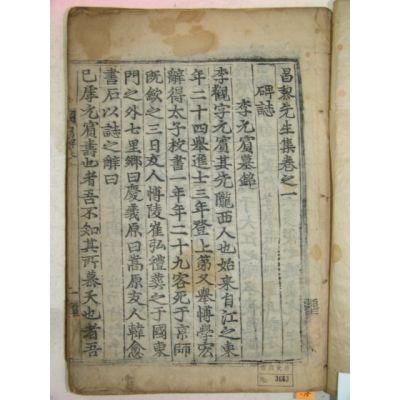 昌黎先生集卷之一
碑誌
李元賓墓銘
李觀字元賓其先隴西人也始來自江之東
年二十四舉進士三年登上第又舉博學宏
辭得太子校書一年年二十九客死于京師
既斂之三日友人博陵崔弘禮葬之于國東
門之外七里鄉曰慶義原曰嵩原友人韓愈
書石以誌之辭曰
已虖元賓壽也者吾不知其所慕夭也者吾